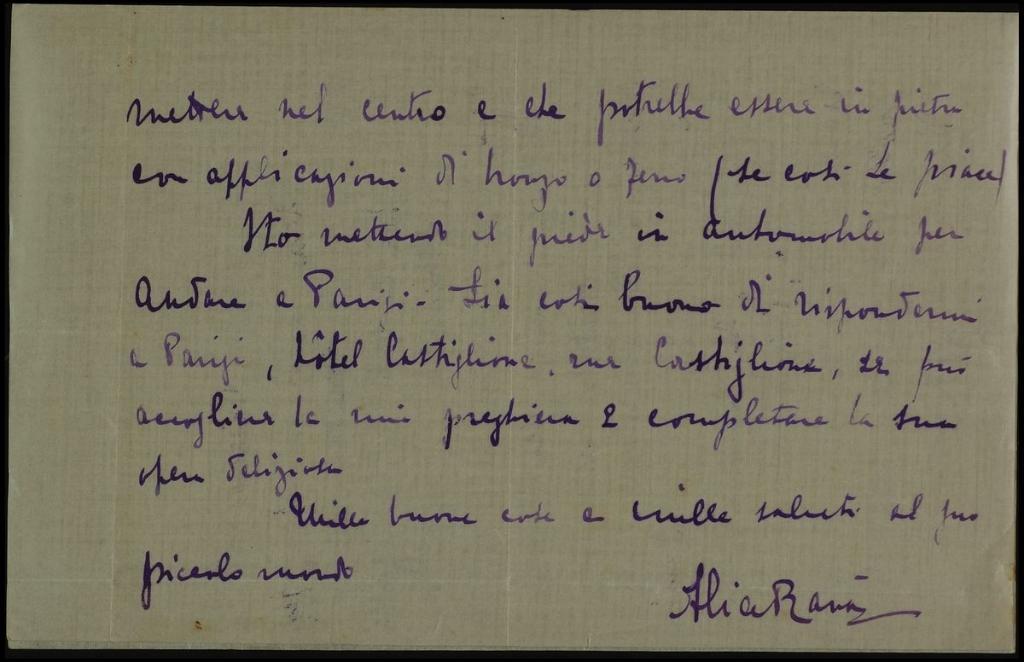 mettere nel centro e che potrebbe essere in pietra
con applicazioni di bronzo o ferro (se così Le piace)
Sto mettendo il piede in automobile per
andare a Parigi. Sia così buono di rispondermi
a Parigi, Hôtel Castiglione, rue Castiglione, se può
accogliere la mia preghiera e completare la sua
opera deliziosa
Mille buone cose e mille saluti al suo
piccolo mondo